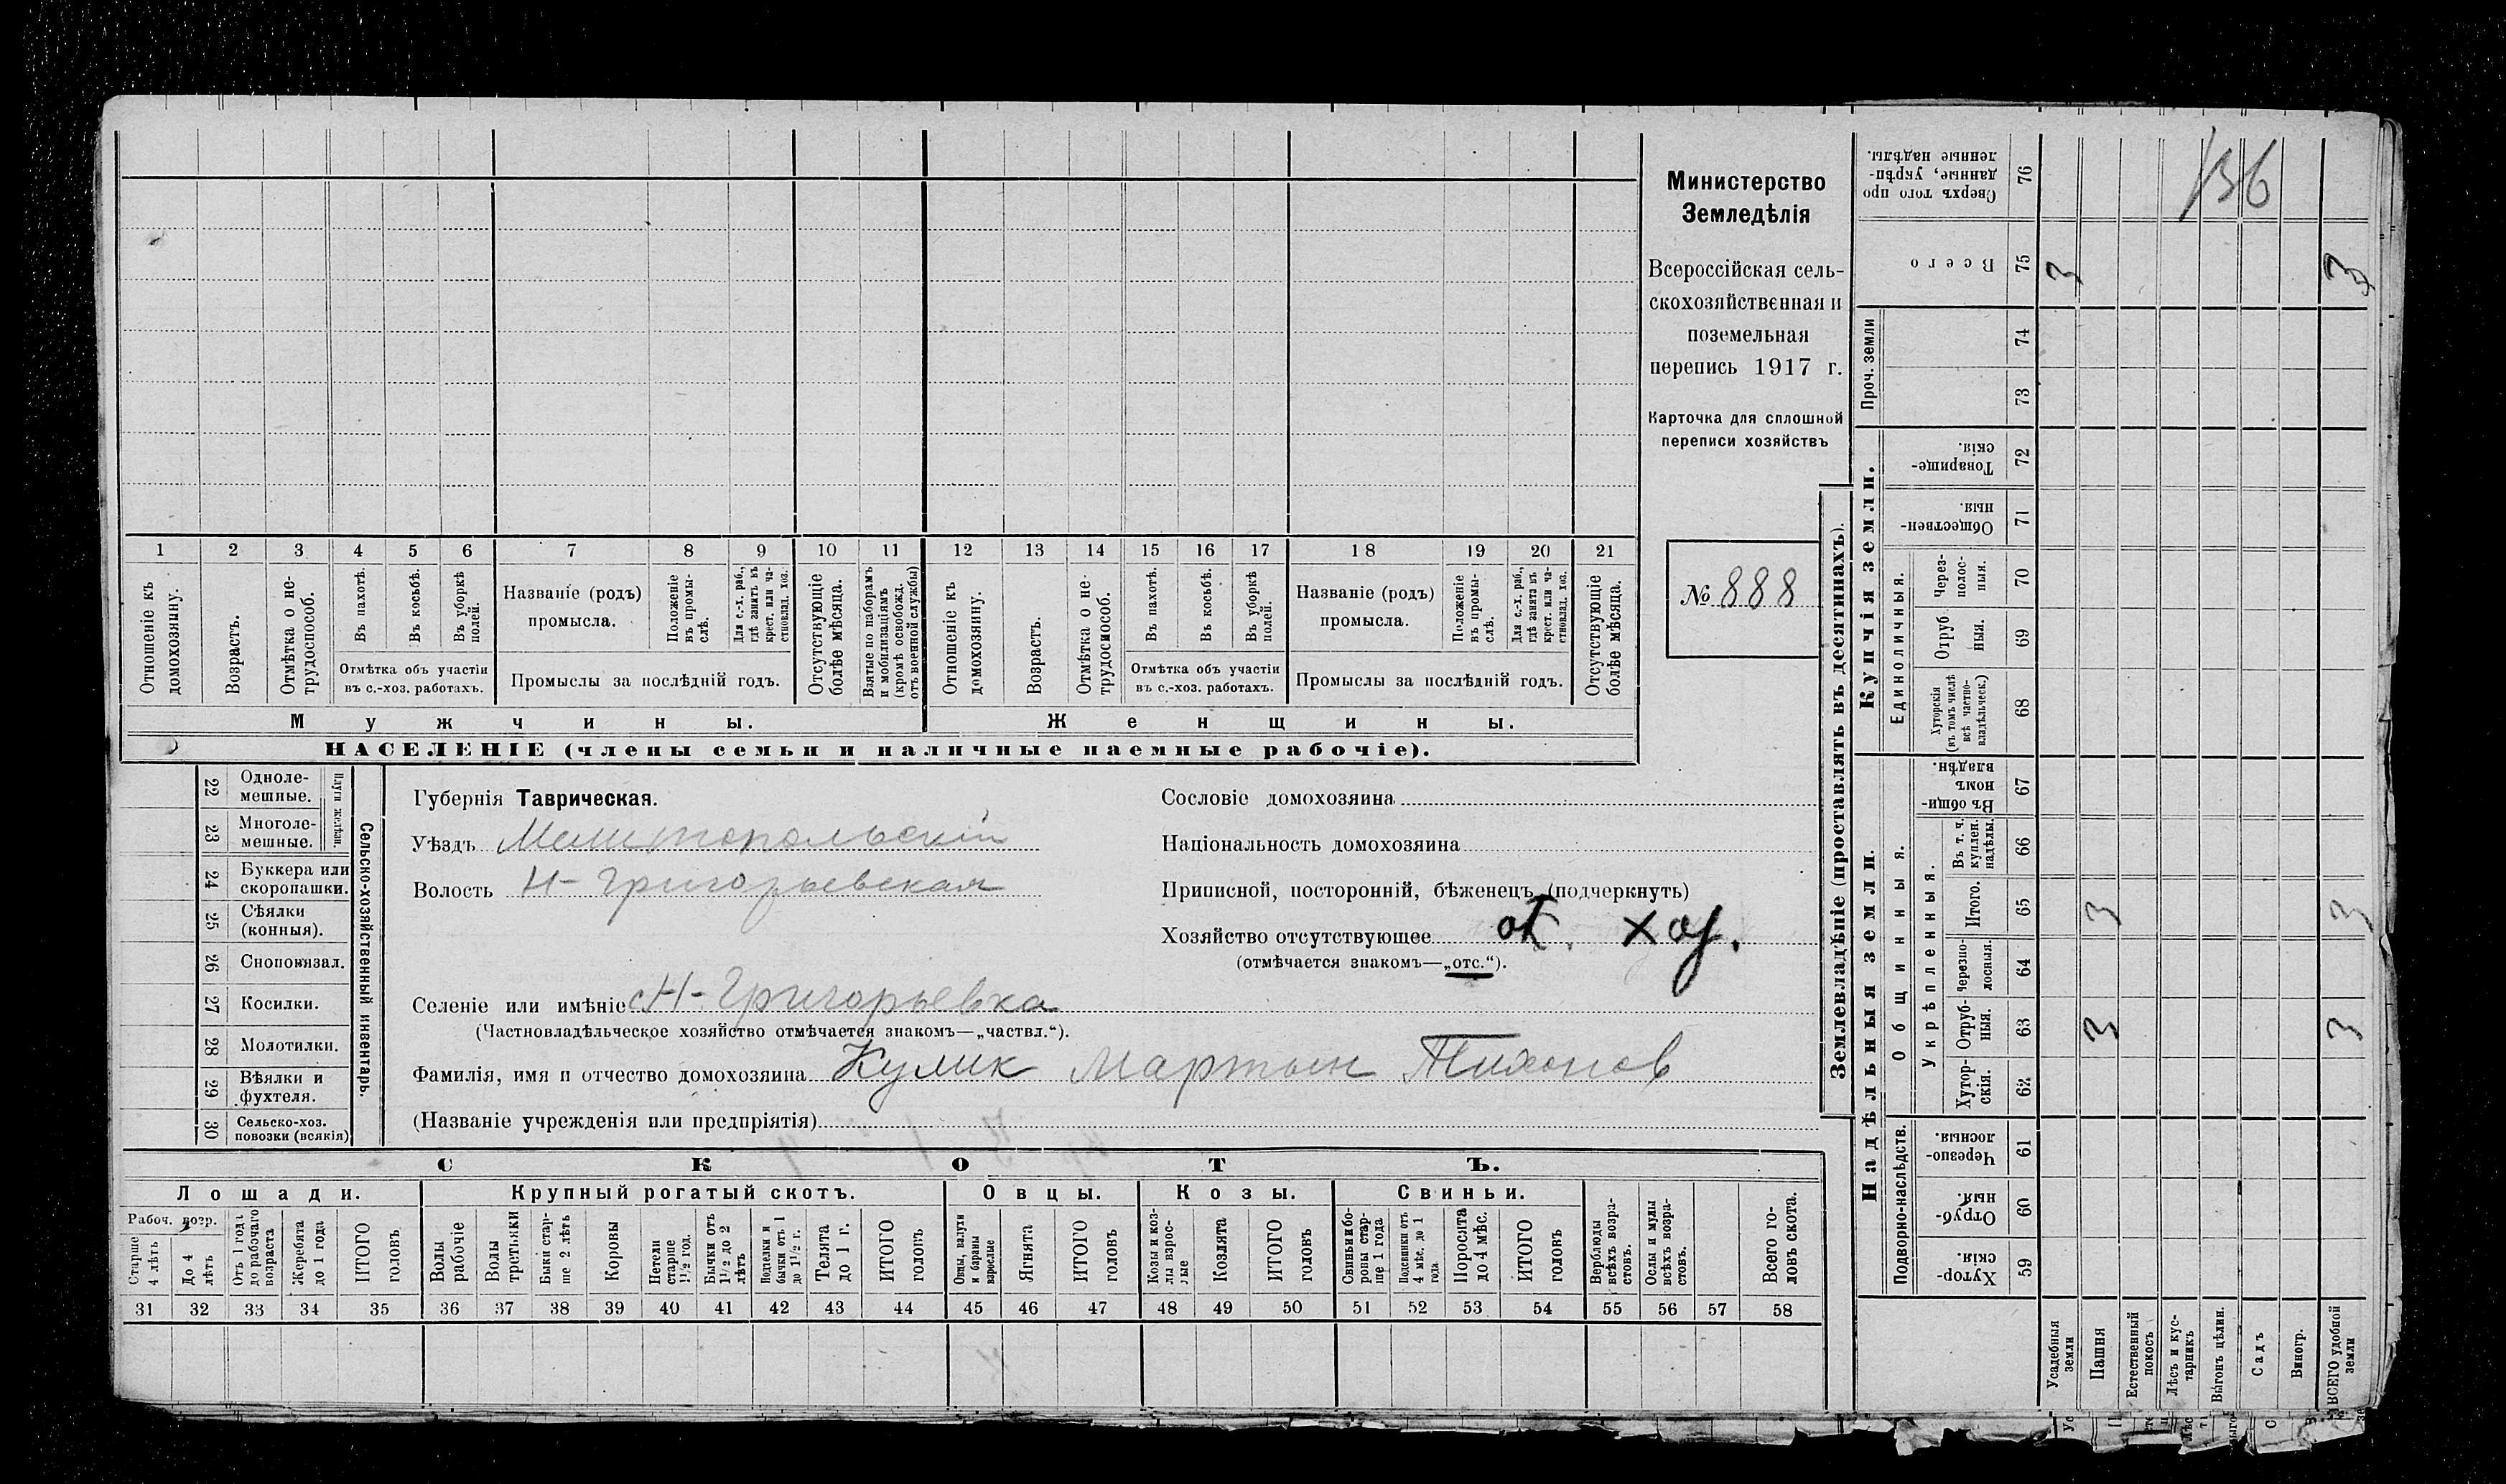 1 2 3 4 5 6 7 8 9 10 11 12 13 14 15 16 17 18 19 20 21
Отношеніе къ домохозяину.
Возрастъ.
Отмѣтка о не-
трудоспособ.
Въ пахотѣ.
Въ косьбѣ.
Въ уборкѣ
полей.
Отмѣтка объ участіи
въ с.-хоз. работахъ.
Названіе (родъ)
промысла.
Положеніе
въ промы-
слѣ.
Для с.-х. раб.,
гдѣ занятъ въ
крест. или ча-
стновлад. хоз.
Промыслы за послѣдній годъ.
Отсутствующіе
болѣе мѣсяца.
Взятые по наборамъ
и мобилизаціямъ
(кромѣ освобожд.
отъ военной службы)
Отношеніе къ
домохозяину.
Возрастъ.
Отмѣтка о не-
трудоспособ.
Въ пахотѣ.
Въ косьбѣ.
Въ уборкѣ
полей.
Отмѣтка объ участіи
въ с.-хоз. работахъ.
Названіе (родъ)
промысла.
Положеніе
въ промы-
слѣ.
Для с.-х. раб.,
гдѣ занята въ
крест. или ча-
стновлад. хоз.
Промыслы за послѣдній годъ.
Отсутствующіе
болѣе мѣсяца.
Мужчины.
Женщины.
НАСЕЛЕНІЕ (члены семьи и наличные наемные рабочіе).
Министерство
Земледѣлія
Всероссійская сель-
скохозяйственная и
поземельная
перепись 1917 г.
Карточка для сплошной
переписи хозяйствъ
№ 888
22 Одноле-
мешные.
23 Многоле-
мешные.
Плуги желѣзн.
24 Буккера или
скоропашки.
25 Сѣялки
(конныя).
26 Сноповязал.
27 Косилки.
28 Молотилки.
29 Вѣялки и
фухтеля.
30 Сельско-хоз.
повозки (всякія)
Сельско-хозяйственный инвентарь.
Губернія Таврическая.
Уѣздъ Мелитопольскій
Волость Н-Григорьевская
Сословіе домохозяина
Національность домохозяина
Приписной, посторонній, бѣженецъ (подчеркнуть)
Хозяйство отсутствующее от. хоз.
(отмѣчается знакомъ—„отс.“).
Селеніе или имѣніе с Н-Григорьевка
(Частновладѣльческое хозяйство отмѣчается знакомъ—„частвл.“).
Фамилія, имя и отчество домохозяина Кулик Мартын Тихонов
(Названіе учрежденія или предпріятія)
СКОТЪ.
Лошади.
Крупный рогатый скотъ.
Овцы.
Козы.
Свиньи.
Рабоч. возр.
Старше
4 лѣтъ
До 4
лѣтъ
Отъ 1 года
до рабочаго
возраста
Жеребята
до 1 года
ИТОГО
головъ
Волы
рабочіе
Волы
третьяки
Быки стар-
ше 2 лѣтъ
Коровы
Нетели
старше
1½ год.
Бычки отъ
1½ до 2
лѣтъ
Подтелки и
бычки отъ 1
до 1½ г.
Телята
до 1 г.
ИТОГО
головъ
Овцы, валухи
и бараны
взрослые
Ягнята
ИТОГО
головъ
Козы и коз-
лы взрос-
лые
Козлята
ИТОГО
головъ
Свиньи и бо-
ровы стар-
ше 1 года
Подсвинки отъ
4 мѣс. до 1
года
Поросята
до 4 мѣс.
ИТОГО
головъ
Верблюды
всѣхъ возра-
стовъ.
Ослы и мулы
всѣхъ возра-
стовъ.
Всего го-
ловъ скота.
31 32 33 34 35 36 37 38 39 40 41 42 43 44 45 46 47 48 49 50 51 52 53 54 55 56 57 58
Землевладѣніе (проставлять въ десятинахъ).
136
Сверхъ того про
данные, укрѣп-
ленные надѣлы.
76
Всего
75 3 3
Проч. земли
74
73
Купчія земли.
Товарище-
скія.
72
Обществен-
ныя.
71
Единоличныя.
Через-
полос-
ныя.
70
Отруб
ныя.
69
Хуторскія
(въ томъ числѣ
всѣ частно-
владѣльческ.)
68
Надѣльныя земли.
Общинныя.
Въ общи-
номъ
владѣн.
67
Укрѣпленныя.
Въ т. ч.
куплен.
надѣлы.
66
Итого.
65 3 3
Черезпо-
лосныя.
64
Отруб-
ныя.
63 3 3
Хутор-
скія.
62
Подворно-наслѣдств.
Черезпо-
лосныя.
61
Отруб-
ныя.
60
Хутор-
скія.
59
Усадебныя
земли
Пашня
Естественный
покосъ
Лѣсъ и кус-
тарникъ
Выгонъ цѣлин.
Садъ
Виногр.
ВСЕГО удобной
земли